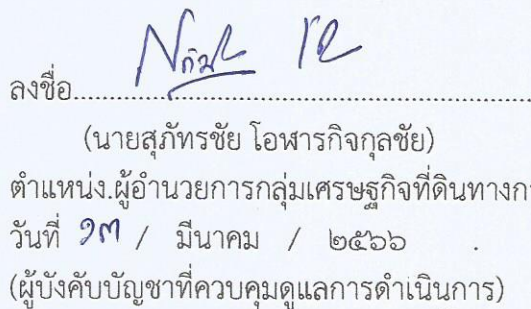 ลงชื่อ
(นายสุภัทรชัย โอฬารกิจกุลชัย)
ตำแหน่ง.ผู้อำนวยการกลุ่มเศรษฐกิจที่ดินทางกา
วันที่ ๑๓ / มีนาคม / ๒๕๖๖ .
(ผู้บังคับบัญชาที่ควบคุมดูแลการดำเนินการ)